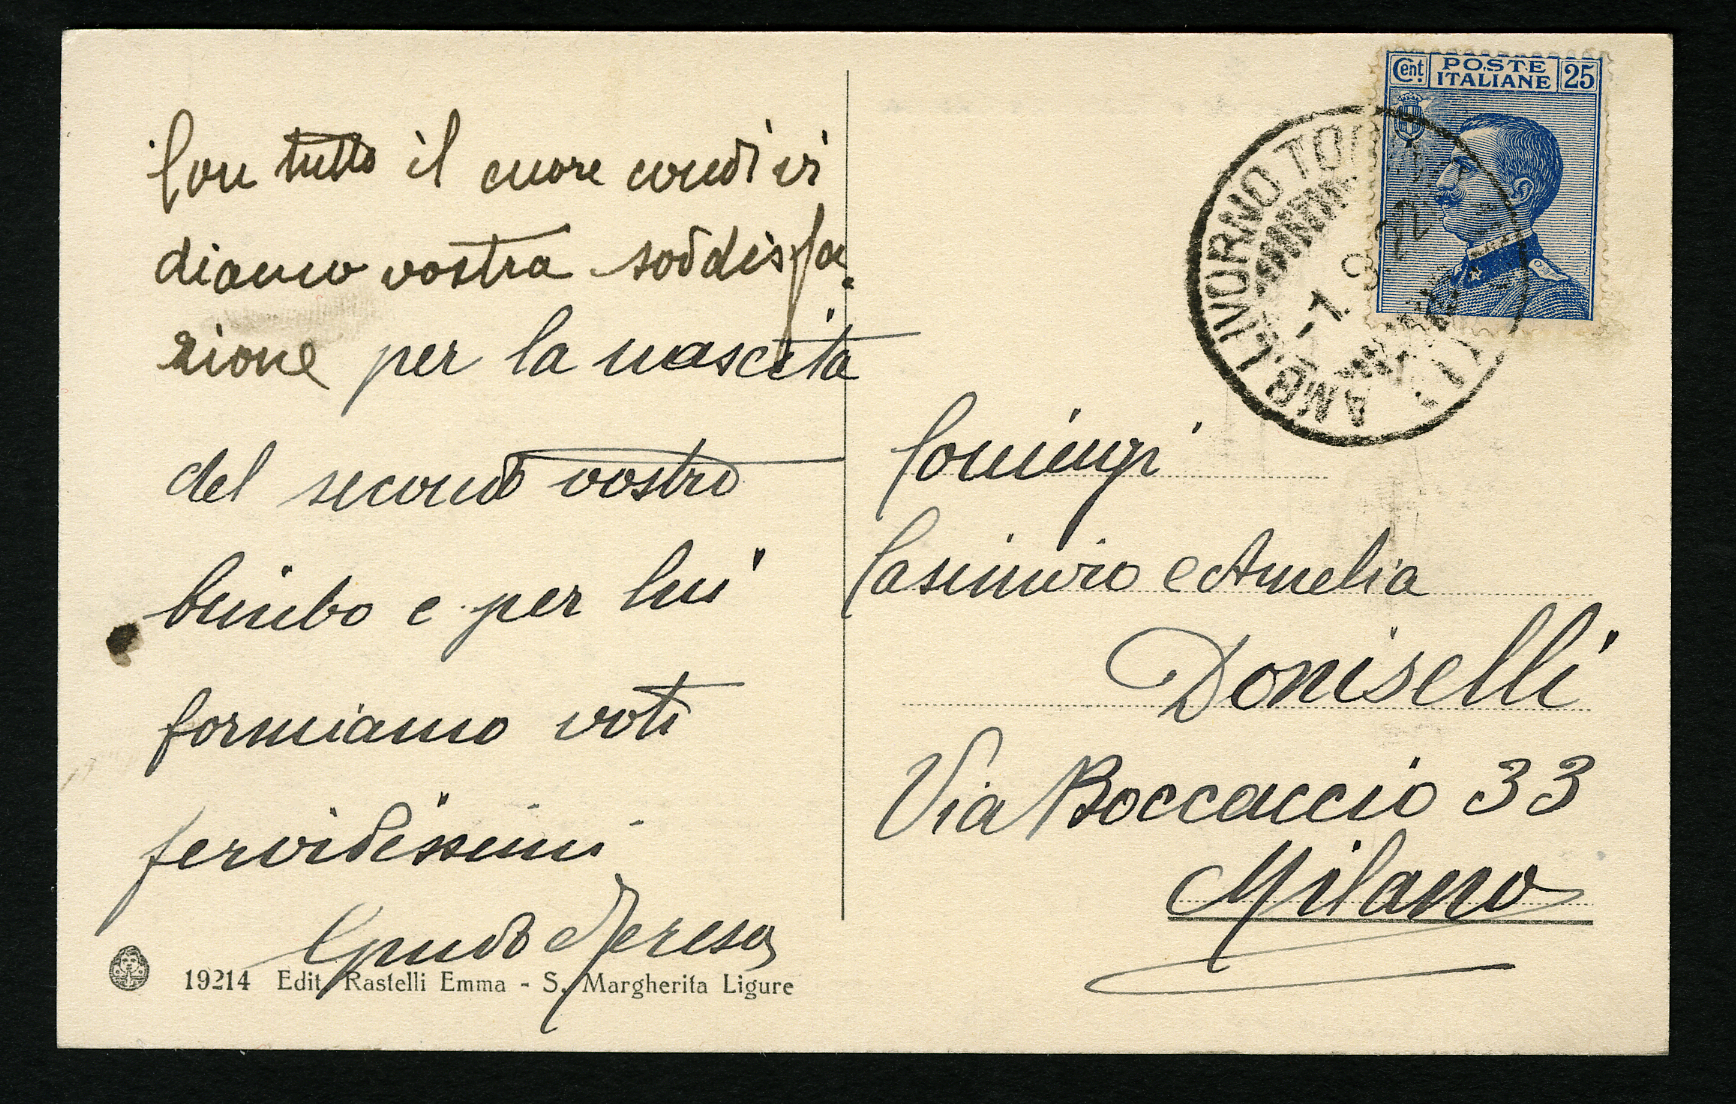 Con tutto il cuore condivi
diamo vostra soddisfa-
zione per la nascita
del secondo vostro
bimbo e per lui
formiamo voti
fervidissimi
Guido e Teresa
19214 Edit. Rastelli Emma - S. Margherita Ligure
Cent. POSTE ITALIANE 25
AMB. LIVORNO TO
-7. 9. 22
Coniugi
Casimiro e Amelia
Doniselli
Via Boccaccio 33
Milano